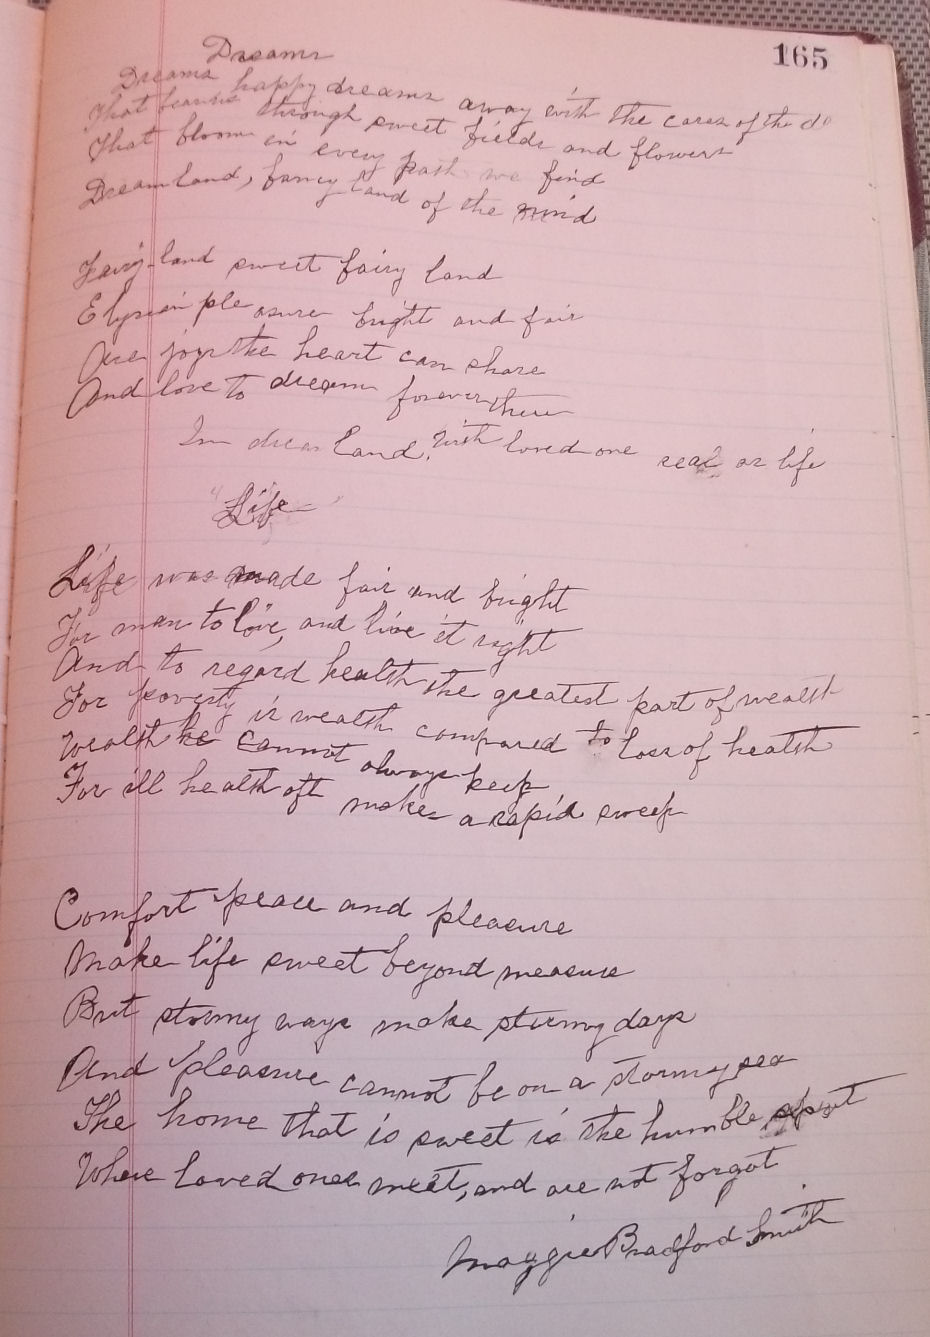 165
Dreams
Dreams happy dreams away with the cares of the
That through sweet fields and flowers
That bloom in every path we find
Dreamland, fancy land of the mind
Fairy-land sweet fairy land
Elysian pleasure bright and fair
Are joys the heart can share
And love to dream forever there
In dream land, with loved one real or life
"Life"
Life was made fair and bright
For man to love, and live it right
And to regard health the greatest part of wealth
For poverty is wealth compared to loss of health
Wealth he cannot always keep
For ill health oft makes a rapid sweep
Comfort peace and pleasure
Make life sweet beyond measure
But stormy ways make stormy days
And pleasure cannot be on a stormy sea
The home that is sweet is the humble spot
Where loved ones meet, and are not forgot
Maggie Bradford Smith